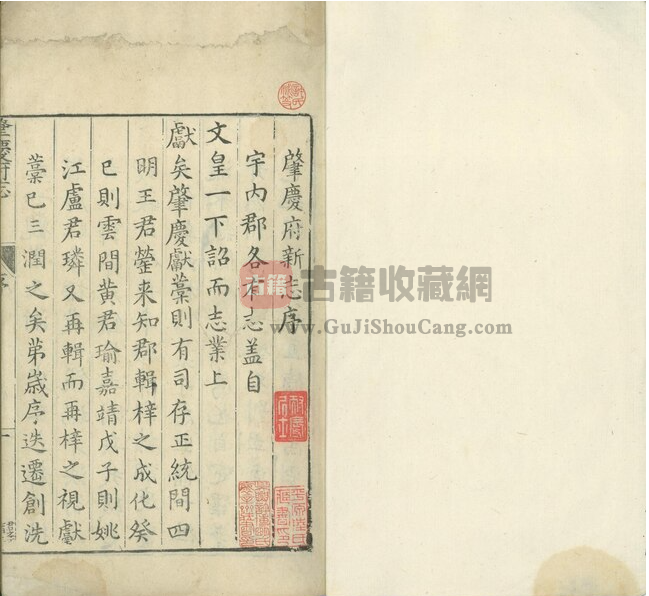 肇慶府新志序
宇內郡各有志蓋自
文皇一下詔而志業上
獻矣肇慶獻藁則有司存正統間四
明王君鎣来知郡輯梓之成化癸
巳則雲間黄君瑜嘉靖戊子則姚
江盧君璘又再輯而再梓之視獻
藁已三潤之矣第歳序迭遷創洗
肇慶府志
序
一
古籍
古籍收藏網
www.GuJiShouCang.com